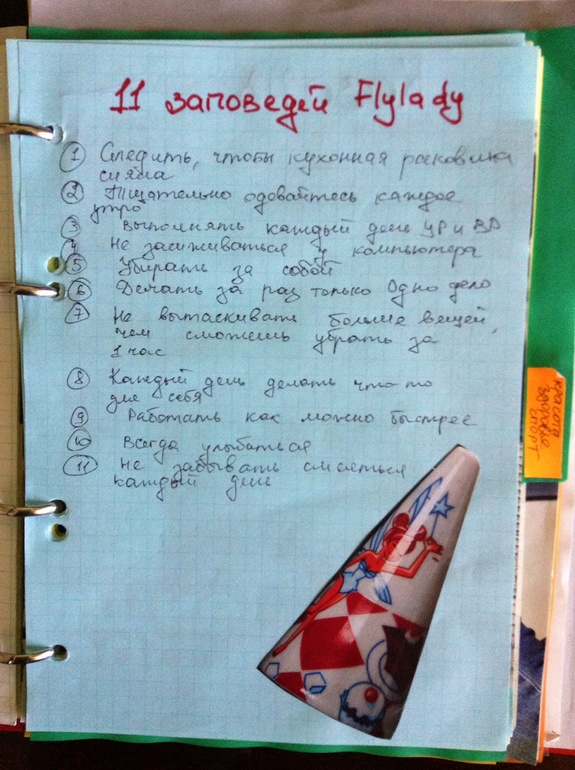 11 заповедей Flylady
1 Следить, чтобы кухонная раковина
сияла
2 Тщательно одевайтесь каждое
утро
3 Выполнять каждый день УР и ВР
4 Не засиживаться у компьютера
5 Убирать за собой
6 Делать за раз только Одно дело
7 Не вытаскивать больше вещей,
чем сможешь убрать за
1 час
8 Каждый день делать что то
для себя
9 Работать как можно быстрее
10 Всегда улыбаться
11 Не забывать смеяться
каждый день
красота
здоровье
спорт